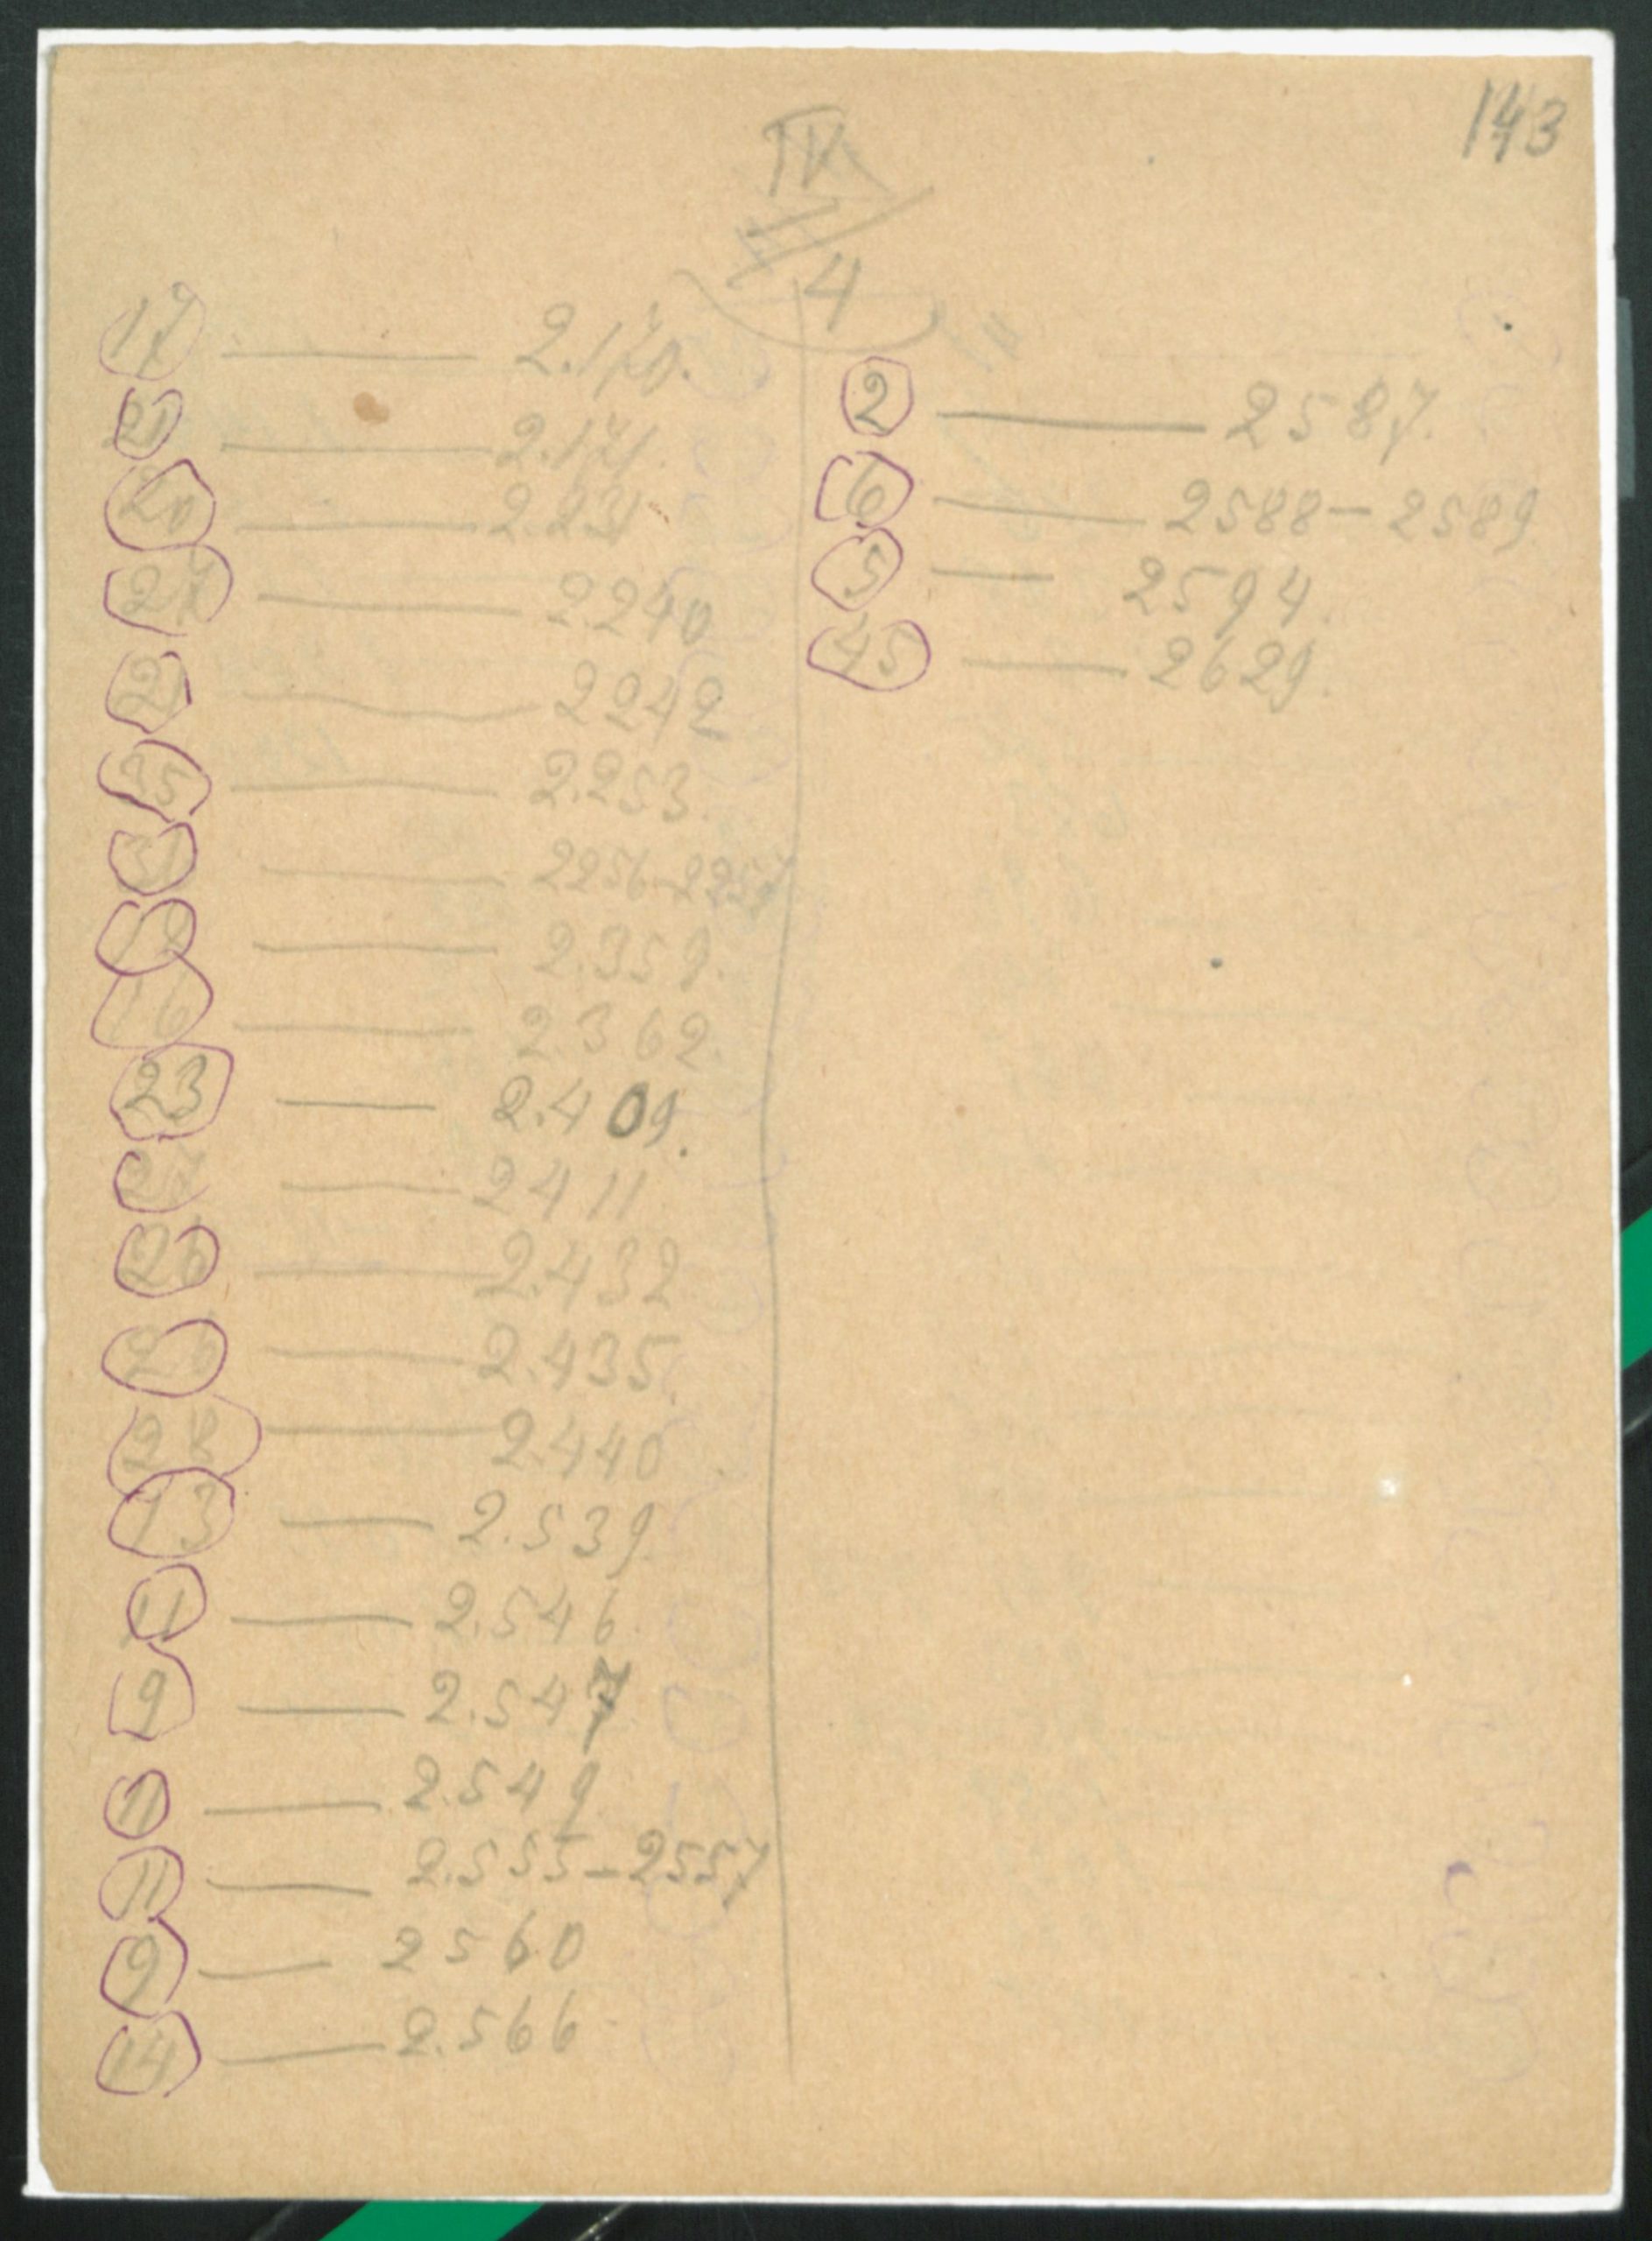 143
ТК
4
17 — 2.170.
21 — 2.171.
20 — 2.231
27 — 2240
21 — 2242
25 — 2.253.
31 — 2256-2257
12 — 2.359.
16 — 2.362.
23 — 2.409.
27 — 2411
26 — 2.432
26 — 2.435.
22 — 2.440
13 — 2.539.
11 — 2.546.
9 — 2.547
11 — 2.549
11 — 2.555-2557
9 — 2560
14 — 2.566.
2 — 2587.
6 — 2588-2589
5 — 2594.
45 — 2629.